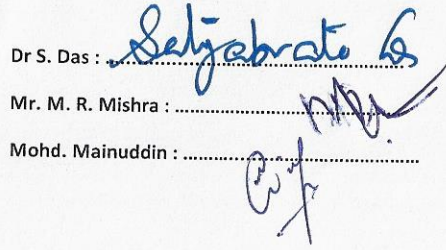 Dr S. Das : Satyabrata Das
Mr. M. R. Mishra :
Mohd. Mainuddin :